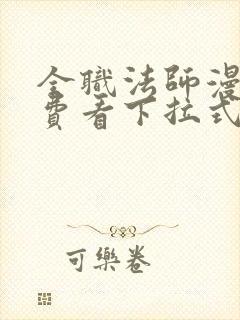 全職法師漫
費看下拉式
可樂卷